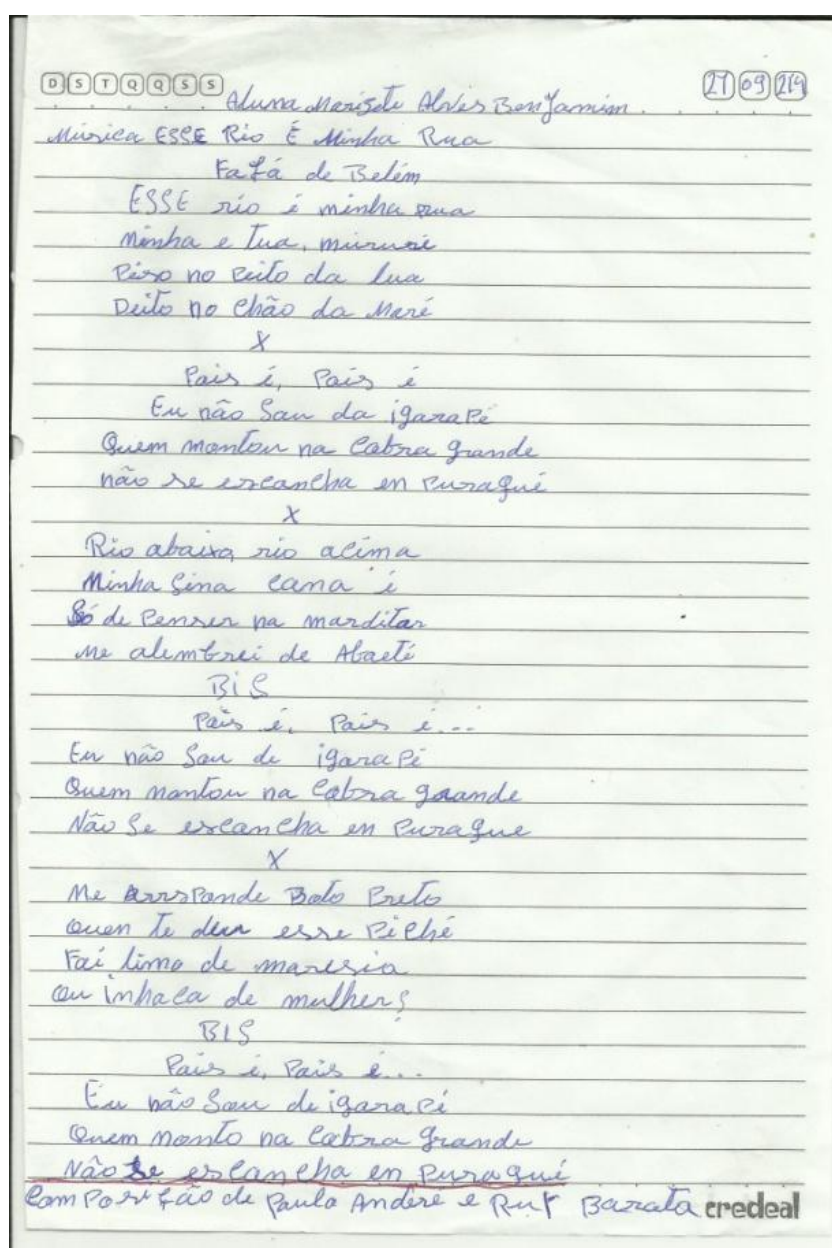 D S T Q Q S S
Aluna Marizete Alves Benjamim. 27 09 219
Música ESSE Rio É Minha Rua
Fafá de Belém
ESSE rio é minha rua
Minha e Tua, mururé
Piso no Peito da lua
Deito no Chão da Maré
X
Pois é, Pois é
Eu não Sou da igarapé
Quem montou na Cobra grande
não se escancha en Puraqué
X
Rio abaixo, rio acima
Minha Sina cana é
Só de Penser na marditar
Me alembrei de Abaeté
BiS
Pois é, Pois é...
Eu não Sou de igarapé
Quem montou na Cobra grande
Não Se escancha en Puraque
X
Me Boto Preto
Quen te deu esse Piché
Foi limo de maresia
Ou inhaca de mulher?
BIS
Pois é, Pois é...
Eu não Sou de igarapé
Quem monto na Cobra grande
Não se escancha en Puraqué
Composição de Paulo Andere e Barata credeal